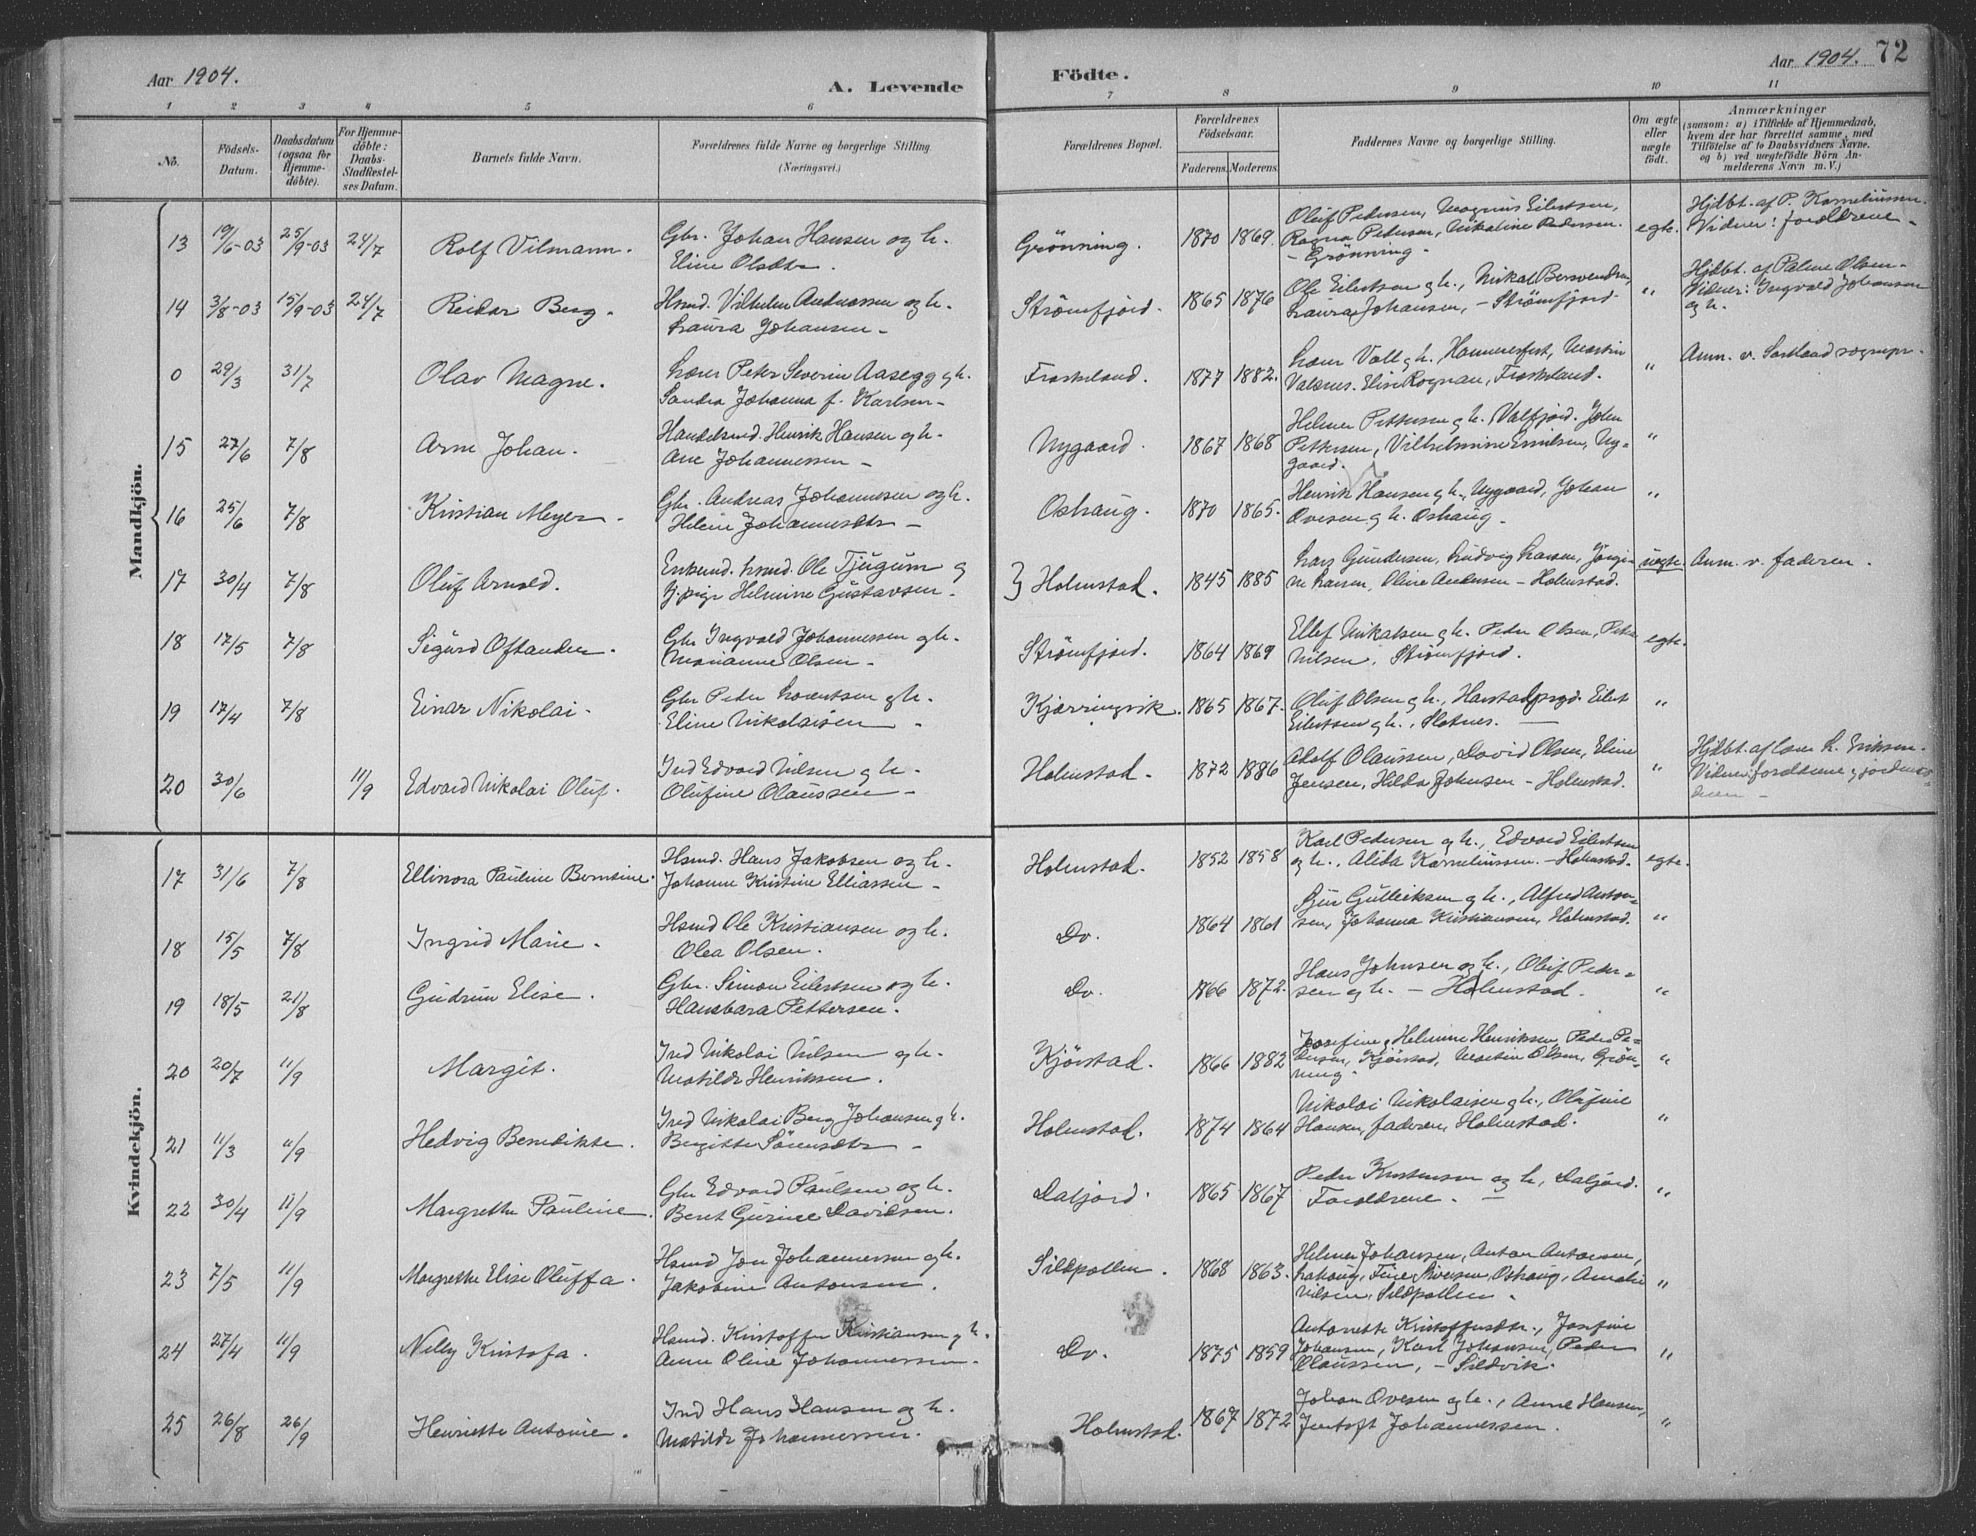 Aar 1904.
A. Levende
Födte.
Aar 1904. 72
1 2 3 4 5 6 7 8 9 10 11
No.
Födsels-Datum.
Daabsdatum (ogsaa for Hjemmedöbte).
For Hjemmedöbte: Daabs-Stadfæstelses Datum.
Barnets fulde Navn.
Forældrenes fulde Navne og borgerlige Stilling. (Næringsvei.)
Forældrenes Bopæl.
Forældrenes Födselsaar.
Faderens. Moderens.
Faddernes Navne og borgerlige Stilling.
Om ægte eller uægte födt.
Anmærkninger
(saasom: a) i Tilfælde af Hjemmedaab, hvem der har forrettet samme, med Tilföielse af to Daabsvidners Navne, og b) ved uægtefödte Börn Anmelderens Navn m. V.)
Mandkjön.
13 19/6-03 25/9-03 24/7 Rolf Vilmann. Gbr. Johan Hansen og h. Eline Olsdtr. Grönning. 1870 1869. Oluf Pedersen, Magnus Eilertsen, Ragna Pedersen, Nikoline Pedersen. - Grönning - egte. Hjdbt. af P. Korneliussen. Vidner: forældrene -
14 3/8-03 15/9-03 24/7 Reidar Berg. Hsmd. Vilhelm Andreassen og h. Laura Johansen - Strömfjord. 1865 1876 Ole Eilertsen og h., Laura Johansen, - Strömfjord - " Hjdbt. af Paline Olsen - Vidner: Ingvald Johansen og h.
0 29/3 31/7 Olav Magne. Lærer Peter Severin Aasegg og h. Sandra Johanna f. Karlsen - Froskeland. 1877 1882. Lærer Voll og h. Hammerfest, Martin Valsnes. Elise Rognan, Froskeland. " Anm. v. Sortland sognepr.
15 27/6 7/8 Arne Johan. Handelsmd. Henrik Hansen og h. Ane Johannessen - Nygaard. 1867 1868 Helmer Pettersen og h. Valfjord. John Pettersen, Vilhelmine Emilsen, Nygaard. "
16 25/6 7/8 Kristian Meyer. Gbr. Andreas Johannesen og h. Heline Johannesdtr - Oshaug. 1870 1865. Henrik Hansen og h., Nygaard, Johan Ovesen og h. Oshaug - "
17 30/4 7/8 Oluf Arnold. Enkemd. hsmd. Ole Tjugum og g. pige Helmine Gustavsen. } Holmstad. 1845 1885 Lars Gundersen, Ludvig Larsen, Jörgine Larsen, Oline Andersen - Holmstad. uegte. Anm. v. faderen.
18 17/5 7/8 Sigurd Oftander. Gbr Ingvald Johannessen og h. Marianne Olsen - Strömfjord. 1864 1869 Ellef Nikolsen og h. Peder Olsen, Peter Nilsen, Strömfjord. egte.
19 17/4 7/8 Einar Nikolai. Gbr Peder Lorentsen og h. Eline Nikolaisen - Kjærringvik. 1865 1867. Oluf Olsen og h., Harstad, Eilert Eilertsen og h., Slotnes. "
20 30/6 11/9 Edvard Nikolai Oluf. Ind Edvard Nilsen og h. Olufine Olaussen - Holmstad - 1872 1886 Adolf Olaussen, David Olsen, Eline Jensen, Hilda Johnsen - Holmstad. " Hjdbt. af lærer L. Eriksen. Vidner: forældrene og jordmoderen -
Kvindekjön.
17 31/6 7/8 Ellinora Pauline Berntine. Hsmd. Hans Jakobsen og h. Johanne Kristine Elliassen - Holmstad. 1852 1858 Karl Pedersen og h., Edvard Eilertsen og h., Alida Korneliussen. - Holmstad. egte.
18 15/5 7/8 Ingrid Marie. Hsmd Ole Kristiansen og h. Olea Olsen. Do. 1864 1861 Gulleiksen og h., Alfred Antonsen, Johanna Kristiansen, Holmstad. "
19 18/5 21/8 Gudrun Elise. Gbr. Simon Eilertsen og h. Hansbara Pettersen. Do. 1866 1872. Hans Johnsen og h., Oluf Pedersen og h. - Holmstad. "
20 20/7 11/9 Margit. Ind Nikolai Nilsen og h. Matilde Henriksen. Kjörstad. 1866 1882 Josefine, Helmine Henriksen, Peder Pedersen, Kjörstad, Martin Olsen, Grönning. "
21 11/3 11/9 Hedvig Benedikte. Ind Nikolai Berg Johansen og h. Birgitte Sörensdtr - Holmstad. 1874 1864 Nikolai Nikolaisen og h., Olufine Hansen, faderen, Holmstad. "
22 30/4 11/9 Margrethe Pauline. Gbr Edvard Paulsen og h. Berit Gurine Davidsen. Daljord. 1865 1867 Peder Kristensen og h., Daljord. Forældrene. - "
23 7/5 11/9 Margrethe Elise Oluffa. Hsmd Jon Johannessen og h. Jakobine Antonsen. Sildpollen. 1868 1863. Helmer Johansen, Anton Antonsen, Fine Iversen, Oshaug, Amalie Nilsen, Sildpollen. "
24 27/4 11/9 Nelly Kristofa. Hsmd. Kristoffer Kristiansen og h. Anne Oline Johannessen. Do. 1875 1859 Antonette Kristoffersdtr., Josefine Johansen, Karl Johansen, Peder Olaussen, - Sildvik. "
25 26/8 26/9 Henriette Antonie. Ind Hans Hansen og h. Matilde Johannessen. Holmstad. 1867 1872 Johan Ovesen og h., Anna Hansen, Jentoft Johannessen. "